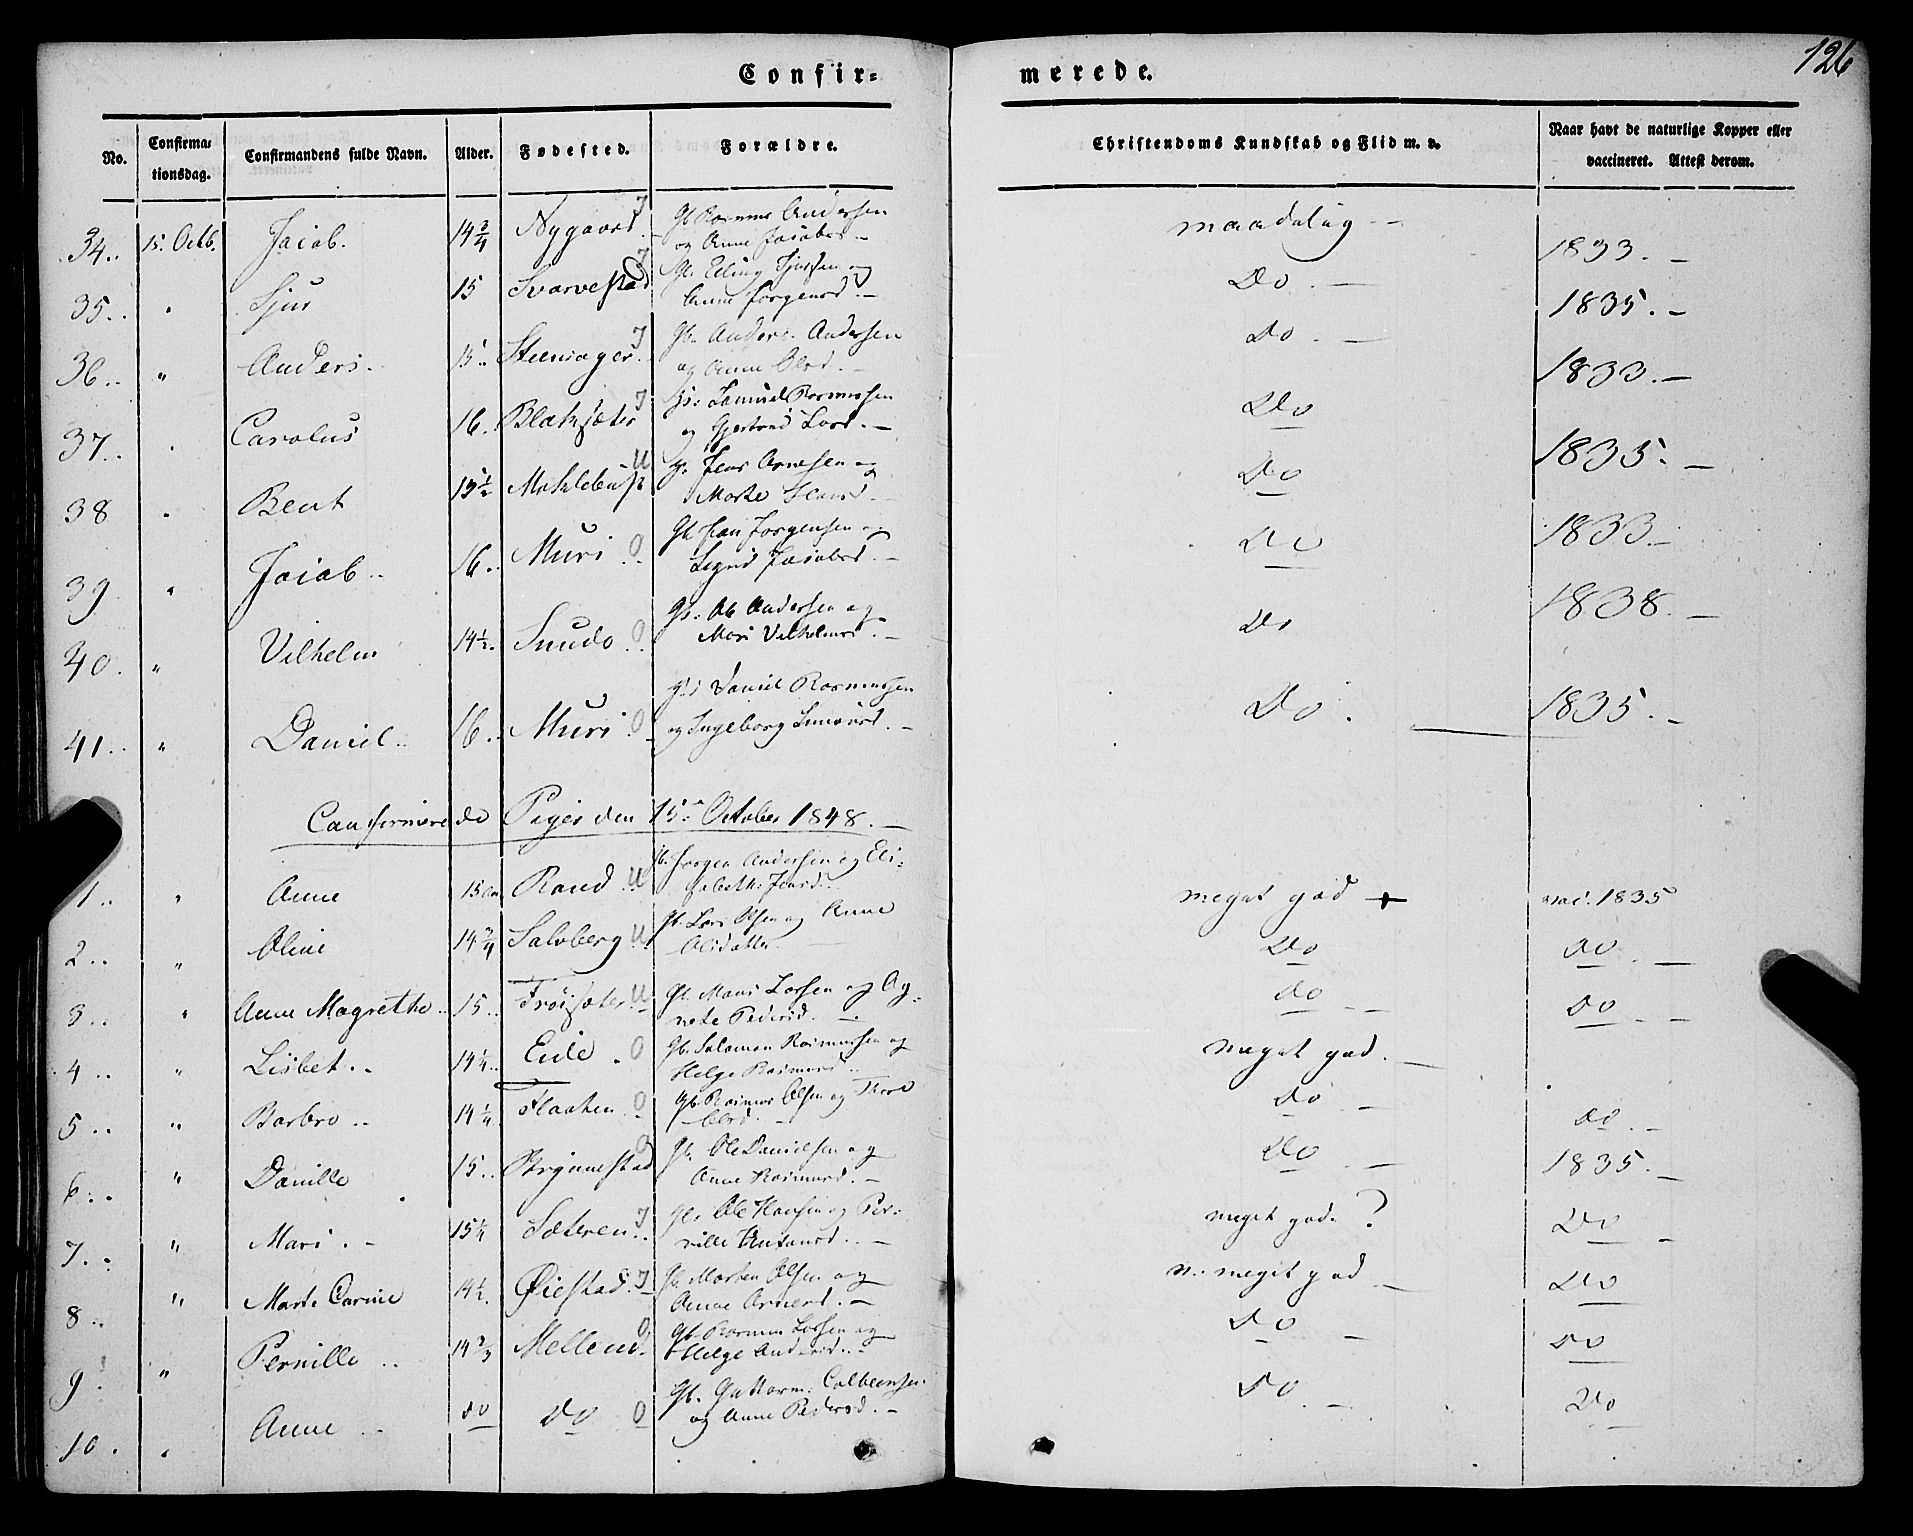 126
Confir- merede.
No. Confirma-tionsdag. Confirmandens fulde Navn. Alder. Fødested. Forældre. Christendoms Kundskab og Flid m. v. Naar havt de naturlige Kopper eller vaccineret. Attest derom.
34.. 15. Octb. Jacob. 14 3/4 Nygaard. I Gb. Rasmus Andersen og Anne Jacobsd. — maadelig — 1833. —
35.. " Sjur 15 Svarvestad I Gb. Elling Sjursen og Anne Jørgensd. — Do. — 1835. —
36.. " Anders. 15.. Steensager. I Gb. Anders Andersen og Anne Olsd. — Do. — 1833. —
37.. " Carolus 16. Blaksæter I Samuel Rasmusen og Gjertrud Larsd. — Do 1835. —
38 " Bent 15 1/2 Maklebust U Jens Arnesen og Marte Hansd. — Do
39 " Jacob.. 16.. Muri O Gb. Hans Jørgensen og Signi Jacobsd. — Do 1833 —
40. " Vilhelm 14 1/2. Sunde O Gb. Ole Andersen og Mari Vilhelmsd. — Do 1838. —
41.. " Daniel.. 16.. Muri O Daniel Rasmusen og Ingeborg Simonsd. — Do. 1835. —
Confirmerede Piger den 15de October 1848. —
1.. " Anne 15 Rand U Gb. Jørgen Andersen og Elisabeth Jensd. meget god + vac. 1835
2.. " Oline 14 3/4 Salvberg U Gb. Lars Olsen og Anne Olsdatter Do do. —
3.. " Anne Magrethe.. 15.. Frøisæter U Gb. Mons Larsen og Agnete Pedersd. — do — do —
4.. " Lisbet.. 14 1/4.. Eide. O Gb. Salamon Rasmussen og Helge Rasmusd. meget god. —
5.. " Barbro.. 14 1/4 Flaaten O Gb. Rasmus Olsen og Olsd. — do — do. —
6.. " Danille 15.. Brynnestad O Gb. Ole Danielsen og Anne Rasmusd. — do — 1835. —
7.. " Mari. - 15 1/4 Sæteren.. I Ole Hansen og Pernille — meget god. ? Do —
8.. " Marte Carine 14 1/2. Øiestad. I Gb. Morten Olsen og Anne Arnesd. — meget god — Do
9. " Pernille.. 14 2/3 Mellend. O Gb. Rasmus Larsen og Helge Andersd. Do — do
10. " Anne.. do do O Gb. Guttorm Colbeensen og Anne Pedersd. — do. — Do